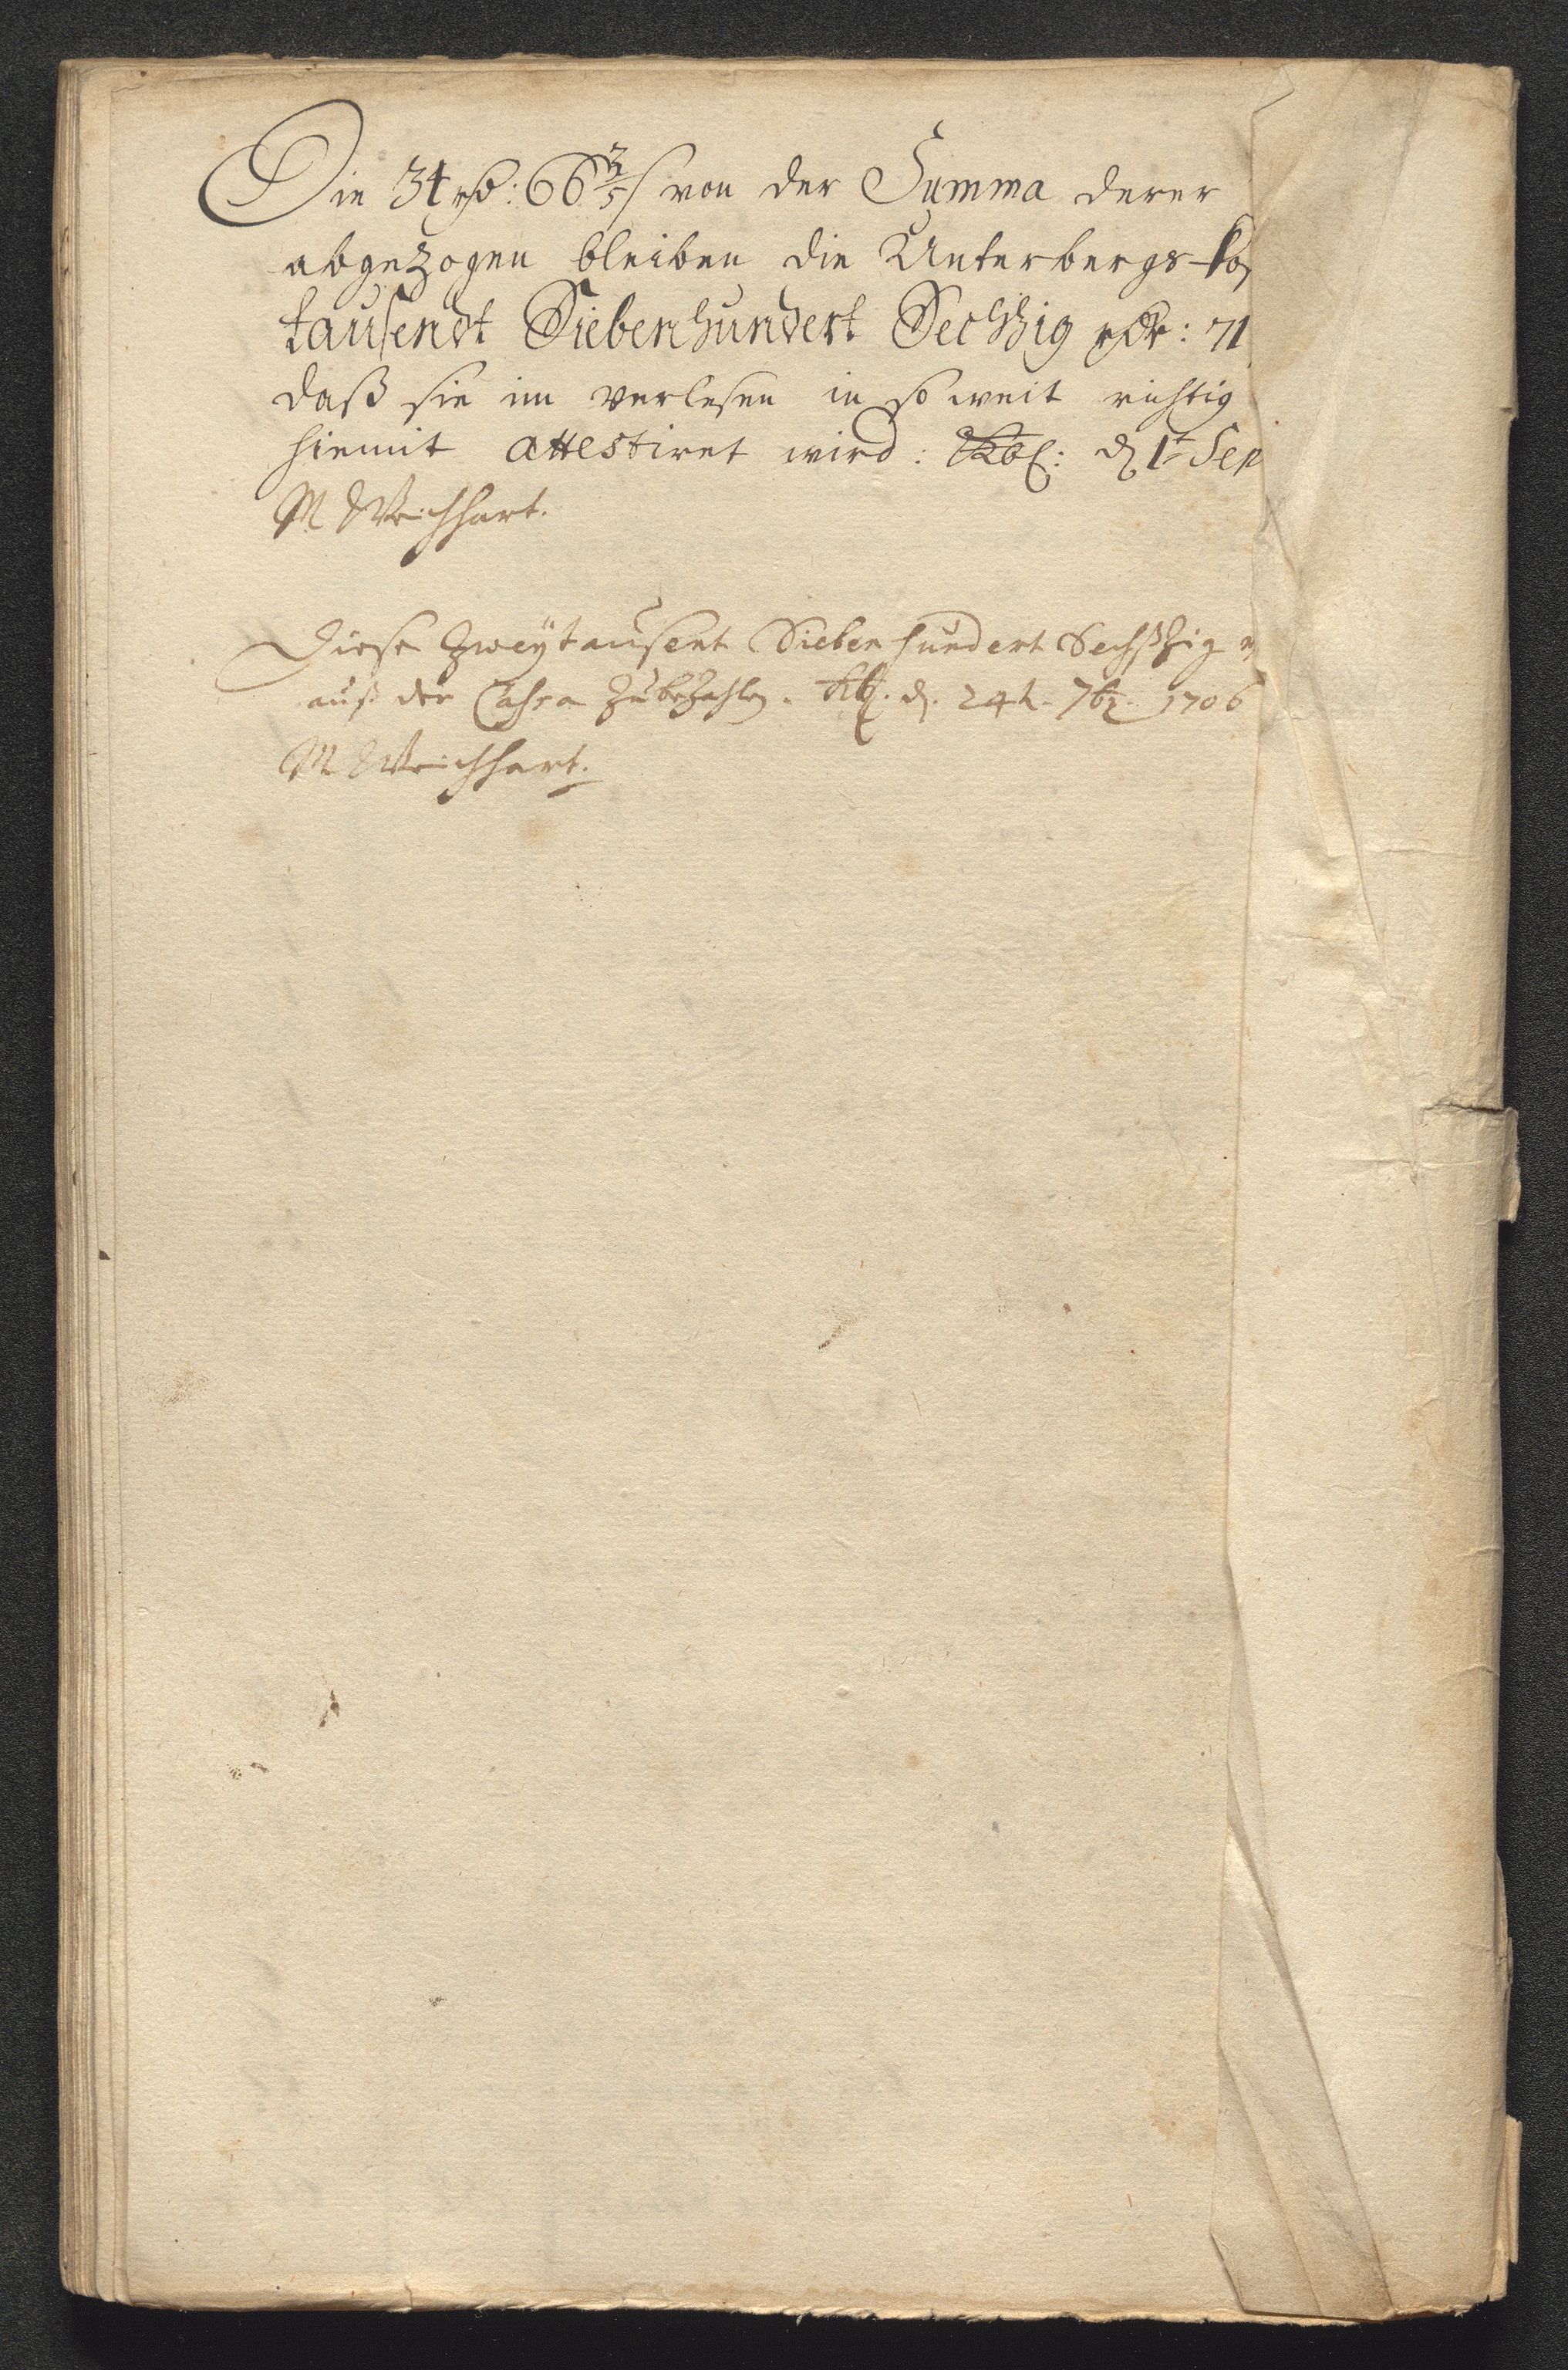 Die 34 rd: 66 2/5 ß von der Summa derer
abgezogen bleiben die Unterbergs-ko
tausendt Siebenhundert Sechzig rdr: 71
daß sie im verlesen in so weit richtig
hiemit attestiret wird: Kbg: d 1t Sep
M Weichhart.
Diese Zweytausent Sieben hundert Sechßzig
auß der Cassa zubezahlen. Kbg. d. 24t. 7br. 1706
M Weichhart.